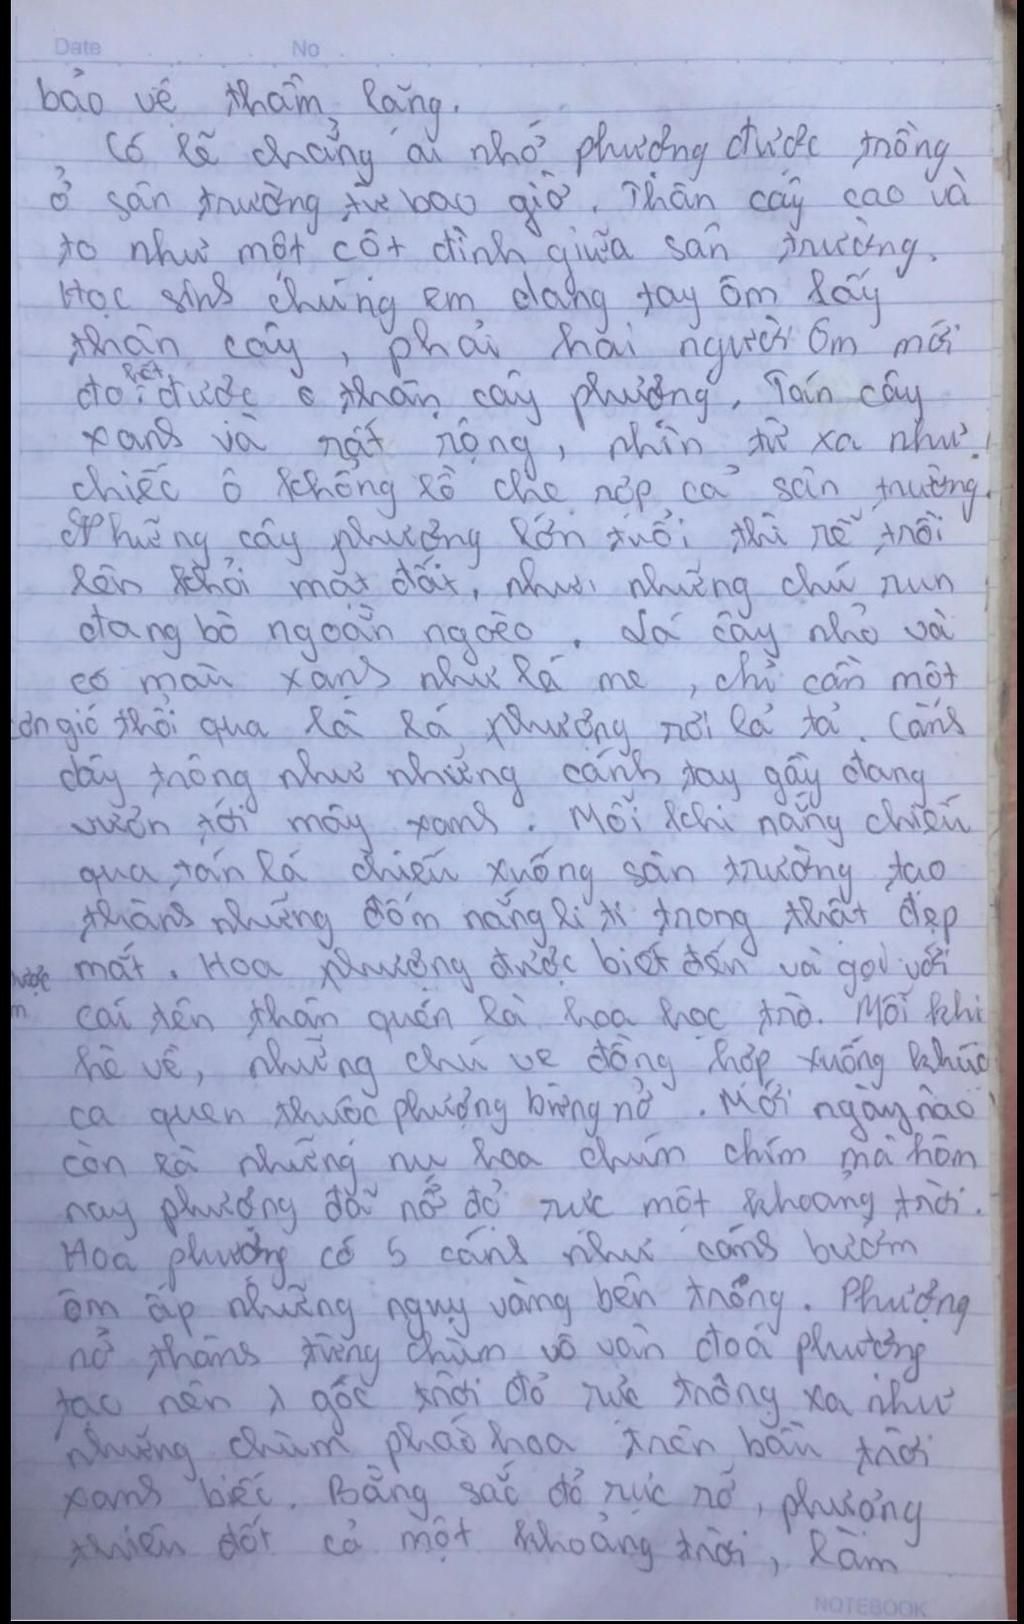 Date No
bảo vệ thầm lặng.
Có lẽ chẳng ai nhớ phượng được trồng
ở sân trường từ bao giờ. Thân cây cao và
to như một cột đình giữa sân trường.
Học sinh chúng em dang tay ôm lấy
thân cây, phải hai người ôm mới
đo hết được thân cây phượng. Tán cây
xanh và rất rộng, nhìn từ xa như
chiếc ô khổng lồ che rợp cả sân trường.
Những cây phượng lớn tuổi thì rễ trồi
lên khỏi mặt đất, như những chú run
đang bò ngoằn ngoèo. Lá cây nhỏ và
có màu xanh như lá me, chỉ cần một
cơn gió thổi qua là lá phượng rơi lả tả. Cành
dây trông như những cánh tay gầy đang
vườn tới mây xanh. Mỗi khi nắng chiếu
qua tán lá chiếu xuống sân trường tạo
thành những đốm nắng li ti trong thật đẹp
mắt. Hoa phượng được biết đến và gọi với
cái tên thân quen là hoa học trò. Mỗi khi
hè về, những chú ve đồng hợp xướng khúc
ca quen thuộc phượng bừng nở. Mới ngày nào
còn là những nụ hoa chúm chím mà hôm
nay phượng đã nở đỏ rực một khoảng trời.
Hoa phượng có 5 cánh như cánh bướm
ôm ấp những nguỵ vàng bên trong. Phượng
nở thành từng chùm vô vàn đoá phượng
tạo nên 1 gốc trời đỏ rực trông xa như
những chùm pháo hoa trên bầu trời
xanh biếc. Bằng sắc đỏ rực rỡ, phượng
thiêu đốt cả một khoảng trời, làm
NOTEBOOK